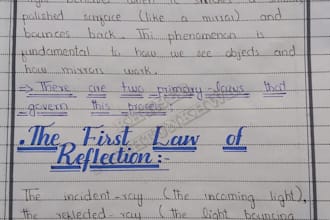 polished surface (like a mirror) and
bounces back. This phenomenon is
fundamental to how we see objects and
how mirrors work.
⇒ There are two primary laws that
govern this process:
.The First Law of
Reflection:-
The incident-ray (the incoming light),
the reflected-ray (the light bouncing